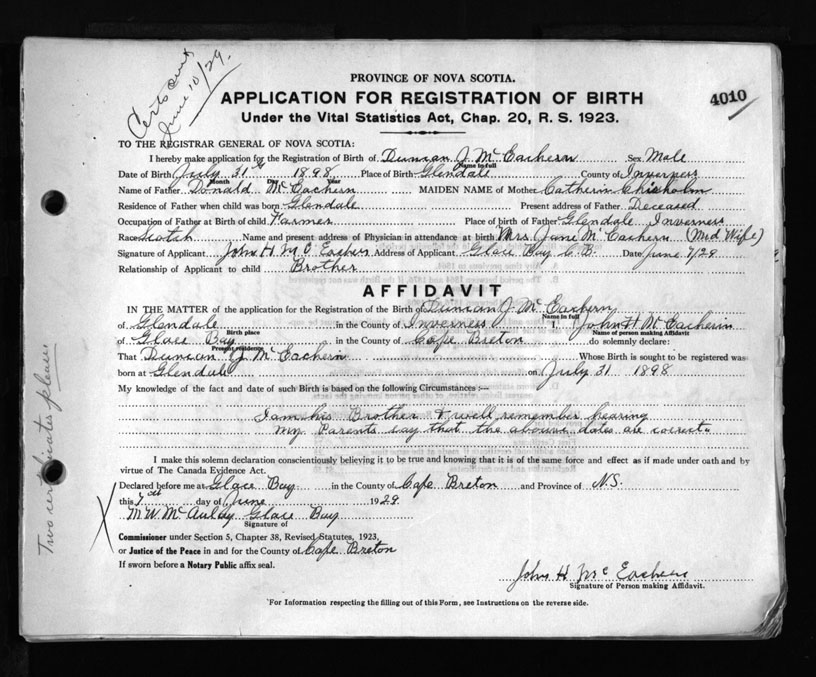 Certs sent
June 10/29.
PROVINCE OF NOVA SCOTIA.
APPLICATION FOR REGISTRATION OF BIRTH
4010
Under the Vital Statistics Act, Chap. 20, R. S. 1923.
TO THE REGISTRAR GENERAL OF NOVA SCOTIA:
I hereby make application for the Registration of Birth of Duncan J. McEachern Sex Male
Name in full
Date of Birth July 31st 1898 Place of Birth Glendale County of Inverness
Month Day Year
Name of Father Donald McEachern MAIDEN NAME of Mother Catherin Chisholm
Residence of Father when child was born Glendale Present address of Father Deceased
Occupation of Father at Birth of child Farmer Place of birth of Father Glendale Inverness
Race Scotch Name and present address of Physician in attendance at birth Mrs. Jane McEachern (Mid Wife)
Signature of Applicant John H McEachern Address of Applicant Glace Bay C.B. Date June 7/29
Relationship of Applicant to child Brother
AFFIDAVIT
IN THE MATTER of the application for the Registration of the Birth of Duncan J. McEachern
Name in full
of Glendale in the County of Inverness I, John H McEacherin
Birth place Name of person making Affidavit
of Glace Bay in the County of Cape Breton do solemnly declare:
Present residence
That Duncan J McEachern Whose Birth is sought to be registered was
born at Glendale on July 31 1898
My knowledge of the fact and date of such Birth is based on the following Circumstances:—
I am his Brother & well remember hearing
my Parents say that the above dates are correct.
I make this solemn declaration conscientiously believing it to be true and knowing that it is of the same force and effect as if made under oath and by
virtue of The Canada Evidence Act.
Declared before me at Glace Bay in the County of Cape Breton and Province of N.S.
this 7 day of June 1929
M. W. McAulay Glace Bay
Signature of
Commissioner under Section 5, Chapter 38, Revised Statutes, 1923,
or Justice of the Peace in and for the County of Cape Breton
If sworn before a Notary Public affix seal.
John H McEachern
Signature of Person making Affidavit.
*For Information respecting the filling out of this Form, see Instructions on the reverse side.
Two certificates please